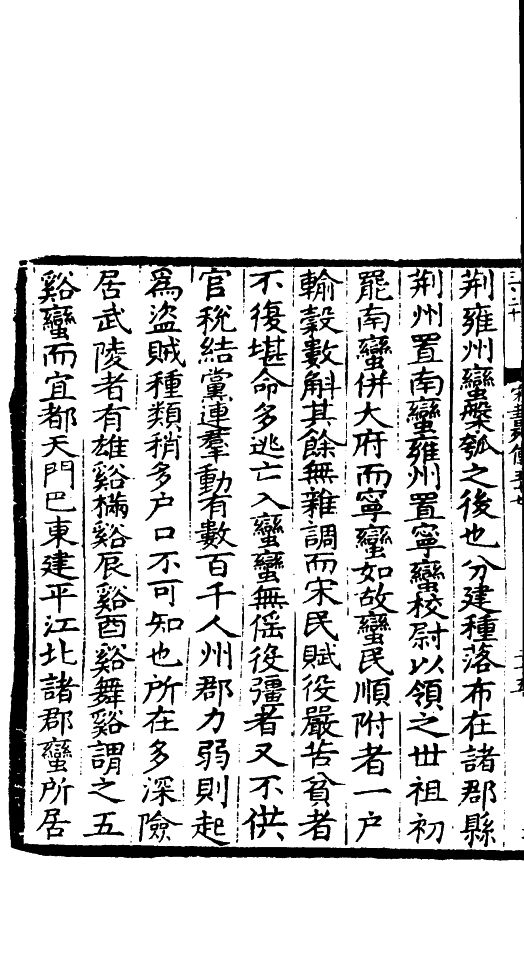 荆雍州蠻槃瓠之後也分建種落布在諸郡縣
荆州置南蠻雍州置寧蠻校尉以領之世祖初
罷南蠻併大府而寧蠻如故蠻民順附者一户
輸穀數斛其餘無雜調而宋民賦役嚴苦貧者
不復堪命多逃亡入蠻蠻無徭役彊者又不供
官稅結黨連羣動有數百千人州郡力弱則起
爲盜賊種類稍多户口不可知也所在多深險
居武陵者有雄谿樠谿辰谿酉谿舞谿謂之五
谿蠻而宜都天門巴東建平江北諸郡蠻所居